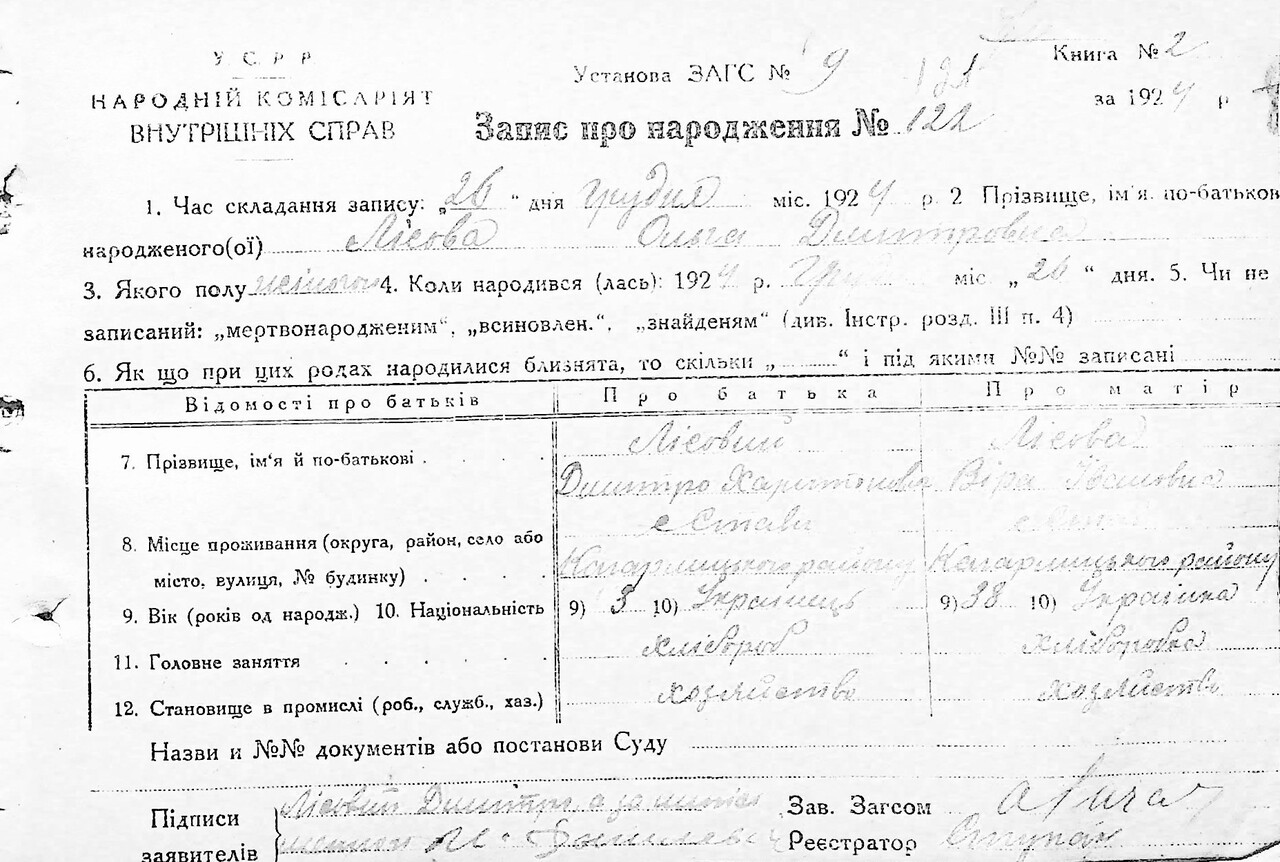 У С Р Р
НАРОДНІЙ КОМІСАРІЯТ
ВНУТРІШНІХ СПРАВ
Установа ЗАГС № 9
Книга № 2
за 1924 р
Запис про народження № 122
1. Час складання запису: „26 " дня грудня міс. 1924 р. 2 Прізвище, ім'я по-батькові
народженого(ої) Лісова Ольга Дмитровна
3. Якого полу жіного 4. Коли народився (лась): 1924 р. груд міс. „26 " дня. 5. Чи не
записаний: „мертвонародженим", „всиновлен.", „знайденям" (див. Інстр. розд. III п. 4)
6. Як що при цих родах народилися близнята, то скільки „ " і під якими №№ записані
Відомості про батьків Про батька Про матір
7. Прізвище, ім'я й по-батькові Лісовий Лісова
Дмитро Харитонови Віра Івановна
с Стави
8. Місце проживання (округа, район, село або
місто, вулиця, № будинку) Кагарлицького району Кагарлицького району
9. Вік (років од народж.) 10. Національність 9) 10) Українець 9) 38 10) Українка
11. Головне заняття хлібороб хлібороба
12. Становище в промислі (роб., служб., хаз.) хозяйство хозяйство
Назви и №№ документів або постанови Суду
Підписи
заявителів
Лісовий Дмитро а за
Зав. Загсом
Реєстратор